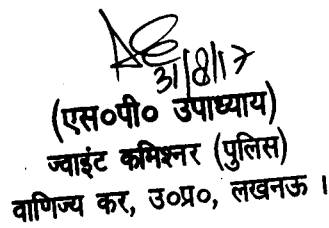 31/8/17
(एस०पी० उपाध्याय)
ज्वाइंट कमिश्नर (पुलिस)
वाणिज्य कर, उ०प्र०, लखनऊ ।